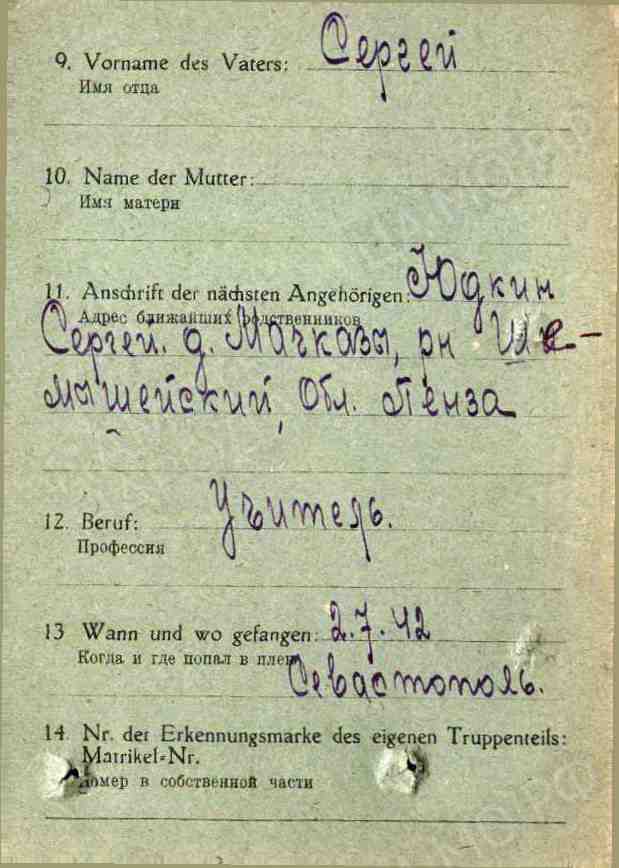 9. Vorname des Vaters: Сергей
Имя отца
10. Name der Mutter:
Имя матери
11. Anschrift der nächsten Angehörigen: Юдкин
Адрес ближайших родственников
Сергей. д. Мачказы, рн Ше-
мышейский, Обл. Пенза
12. Beruf: Учитель.
Профессия
13 Wann und wo gefangen: 2.7.42
Когда и где попал в плен
Севастополь.
14. Nr. der Erkennungsmarke des eigenen Truppenteils:
Matrikel-Nr.
Номер в собственной части